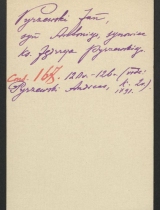 Pyszewski Jan,
syn Antoniego, synowiec
ks. Jerzego Pyszewskiego.
167. 120a.-126.
Pyszewski Andrzej, k. 20
1831.